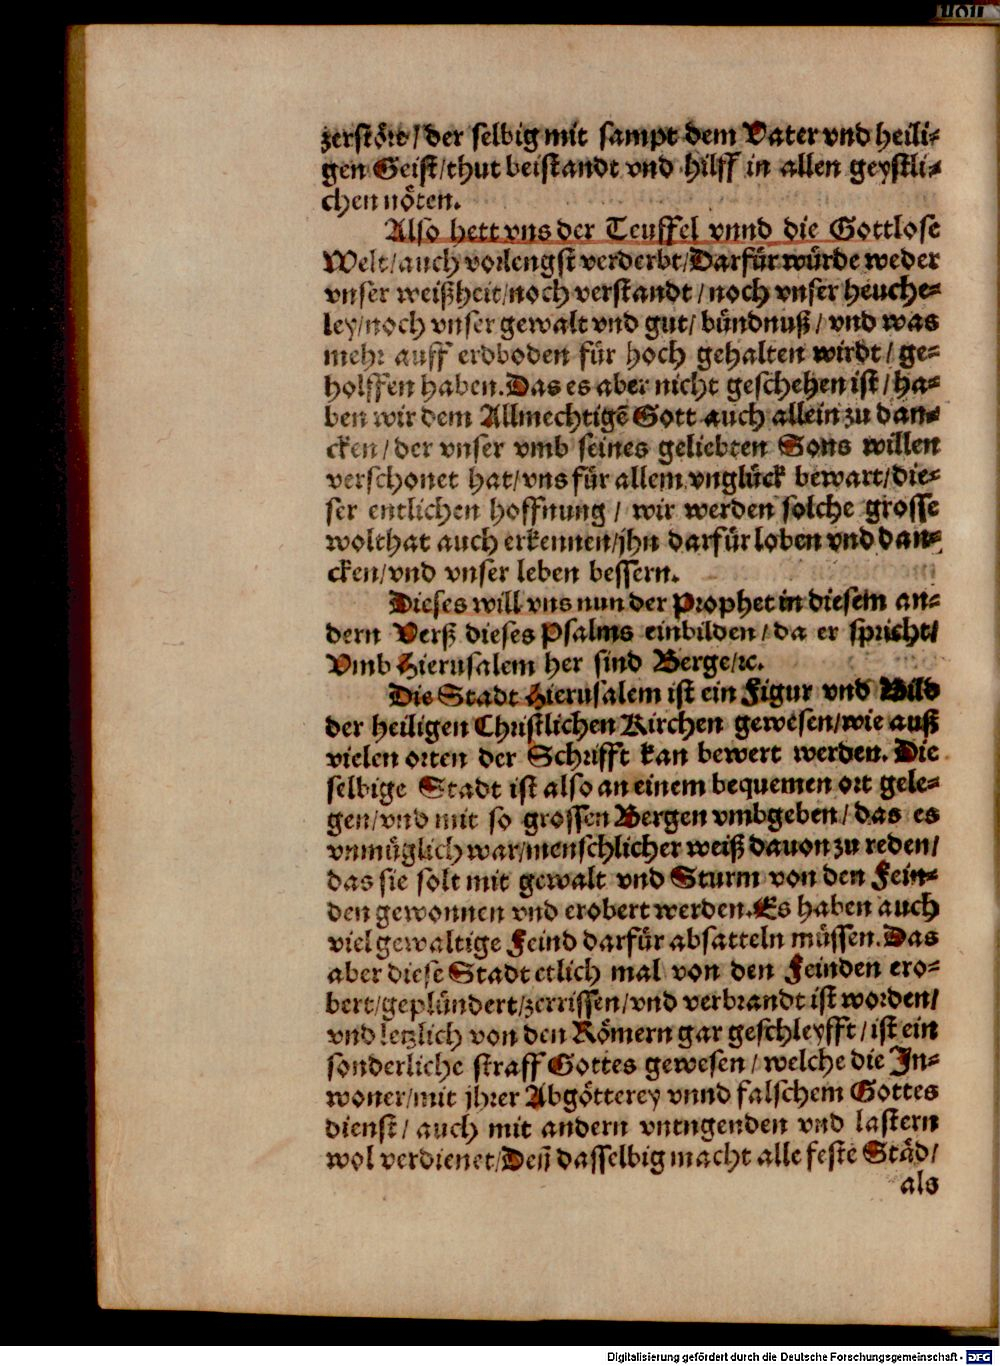 zerstöre/der selbig mit sampt dem Vater vnd heili-
gen Geist/thut beistandt vnd hilff in allen geystli-
chen nöten.
Also hett vns der Teuffel vnnd die Gottlose
Welt/auch vorlengst verderbt/Darfür würde weder
vnser weißheit/noch verstandt/noch vnser heuche-
ley/noch vnser gewalt vnd gut/bündnuß/vnd was
mehr auff erdboden für hoch gehalten wirdt/ge-
holffen haben. Das es aber nicht geschehen ist/ha-
ben wir dem Allmechtigē Gott auch allein zu dan-
cken/der vnser vmb seines geliebten Sons willen
verschonet hat/vns für allem vnglück bewart/die-
ser entlichen hoffnung/wir werden solche grosse
wolthat auch erkennen/jhn darfür loben vnd dan-
cken/vnd vnser leben bessern.
Dieses will vns nun der Prophet in diesem an-
dern Verß dieses Psalms einbilden/da er spricht/
Vmb Hierusalem her sind Berge/ꝛc.
Die Stadt Hierusalem ist ein Figur vnd Bild
der heiligen Christlichen Kirchen gewesen/wie auß
vielen orten der Schrifft kan bewert werden. Die
selbige Stadt ist also an einem bequemen ort gele-
gen/vnd mit so grossen Bergen vmbgeben/das es
vnmüglich war/menschlicher weiß dauon zu reden/
das sie solt mit gewalt vnd Sturm von den Fein-
den gewonnen vnd erobert werden. Es haben auch
viel gewaltige Feind darfür absatteln müssen. Das
aber diese Stadt etlich mal von den Feinden ero-
bert/geplündert/zerrissen/vnd verbrandt ist worden/
vnd letzlich von den Römern gar geschleyfft/ist ein
sonderliche straff Gottes gewesen/welche die In-
woner/mit jhrer Abgötterey vnnd falschem Gottes
dienst/auch mit andern vntugenden vnd lastern
wol verdienet/Deñ dasselbig macht alle feste Städ/
als
Digitalisierung gefördert durch die Deutsche Forschungsgemeinschaft - DFG